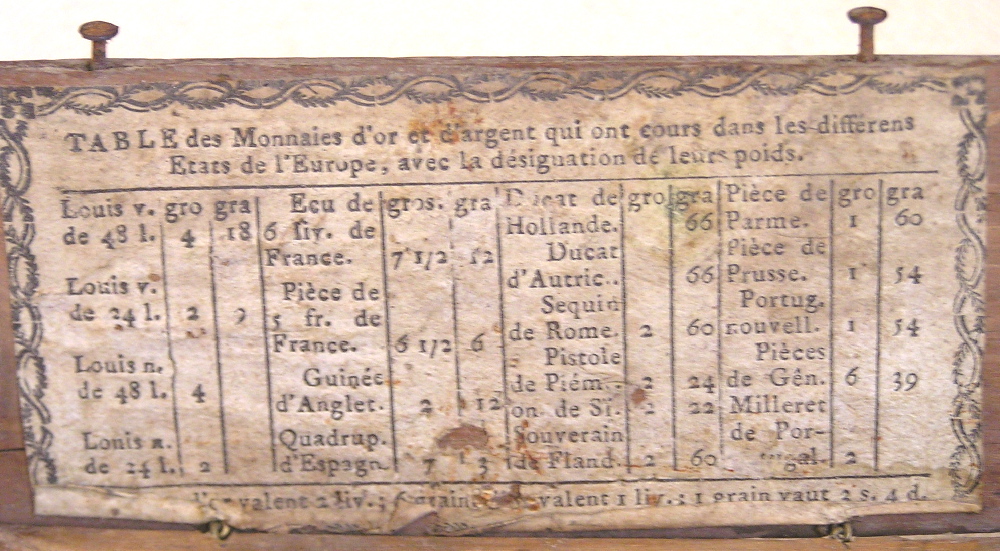 TABLE des Monnaies d'or et d'argent qui ont cours dans les différens
Etats de l'Europe, avec la désignation de leurs poids.
Louis v. gro gra
de 48 l. 4 18
Louis v.
de 24 l. 2
Louis n.
de 48 l. 4
Louis n.
de 24 l. 2
Ecu de gros. gra
6 liv. de
France. 7 1/2 12
Pièce de
5 fr. de
France. 6 1/2 6
Guinée
d'Anglet. 2 12
Quadrup.
d'Espagn. 7 3
Ducat de gro gra
Hollande. 66
Ducat
d'Autric.. 66
Sequin
de Rome. 2 60
Pistole
de Piém. 2 24
on de Si. 2 22
Souverain
de Fland. 2 60
Pièce de gro gra
Parme. 1 60
Pièce de
Prusse. 1 54
Portug.
nouvell. 1 54
Pièces
de Gên. 6 39
Milleret
de Por-
tugal. 2
l'or valent 2 liv.; 6 grains valent 1 liv.; 1 grain vaut 2 s. 4 d.